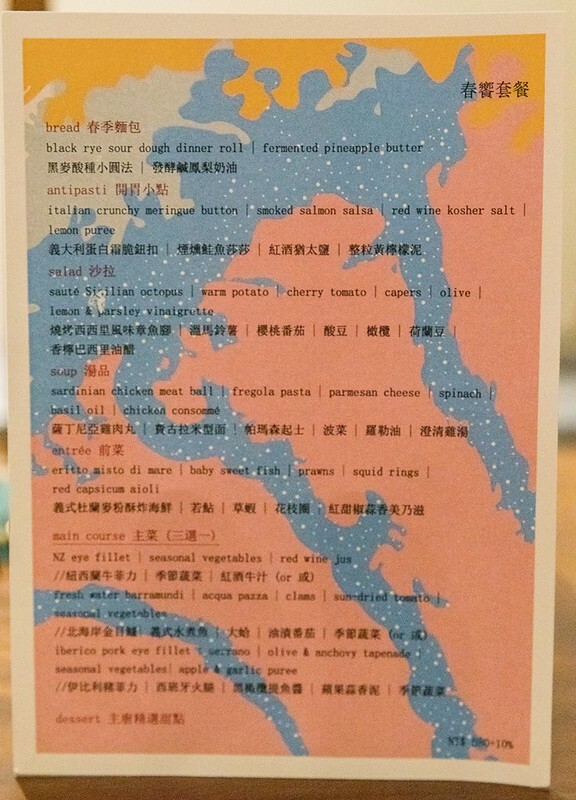 春饗套餐
bread 春季麵包
black rye sour dough dinner roll | fermented pineapple butter
黑麥酸種小圓法 | 發酵鹹鳳梨奶油
antipasti 開胃小點
italian crunchy meringue button | smoked salmon salsa | red wine kosher salt |
lemon puree
義大利蛋白霜脆鈕扣 | 煙燻鮭魚莎莎 | 紅酒猶太鹽 | 整粒黃檸檬泥
salad 沙拉
sauté Sicilian octopus | warm potato | cherry tomato | capers | olive |
lemon & parsley vinaigrette
燒烤西西里風味章魚腳 | 溫馬鈴薯 | 櫻桃番茄 | 酸豆 | 橄欖 | 荷蘭豆 |
香檸巴西里油醋
soup 湯品
sardinian chicken meat ball | fregola pasta | parmesan cheese | spinach |
basil oil | chicken consommé
薩丁尼亞雞肉丸 | 費古拉米型面 | 帕瑪森起士 | 波菜 | 羅勒油 | 澄清雞湯
entrée 前菜
eritto misto di mare | baby sweet fish | prawns | squid rings |
red capsicum aioli
義式杜蘭麥粉酥炸海鮮 | 若鮎 | 草蝦 | 花枝圈 | 紅甜椒蒜香美乃滋
main course 主菜 (三選一)
NZ eye fillet | seasonal vegetables | red wine jus
//紐西蘭牛菲力 | 季節蔬菜 | 紅酒牛汁 (or 或)
fresh water barramundi | acqua pazza | clams | sun-dried tomato |
seasonal vegetables
//北海岸金目鱸 | 義式水煮魚 | 大蛤 | 油漬番茄 | 季節蔬菜 (or 或)
iberico pork eye fillet | serrano | olive & anchovy tapenade |
seasonal vegetables| apple & garlic puree
//伊比利豬菲力 | 西班牙火腿 | 黑橄欖鯷魚醬 | 蘋果蒜香泥 | 季節蔬菜
dessert 主廚精選甜點
+10%